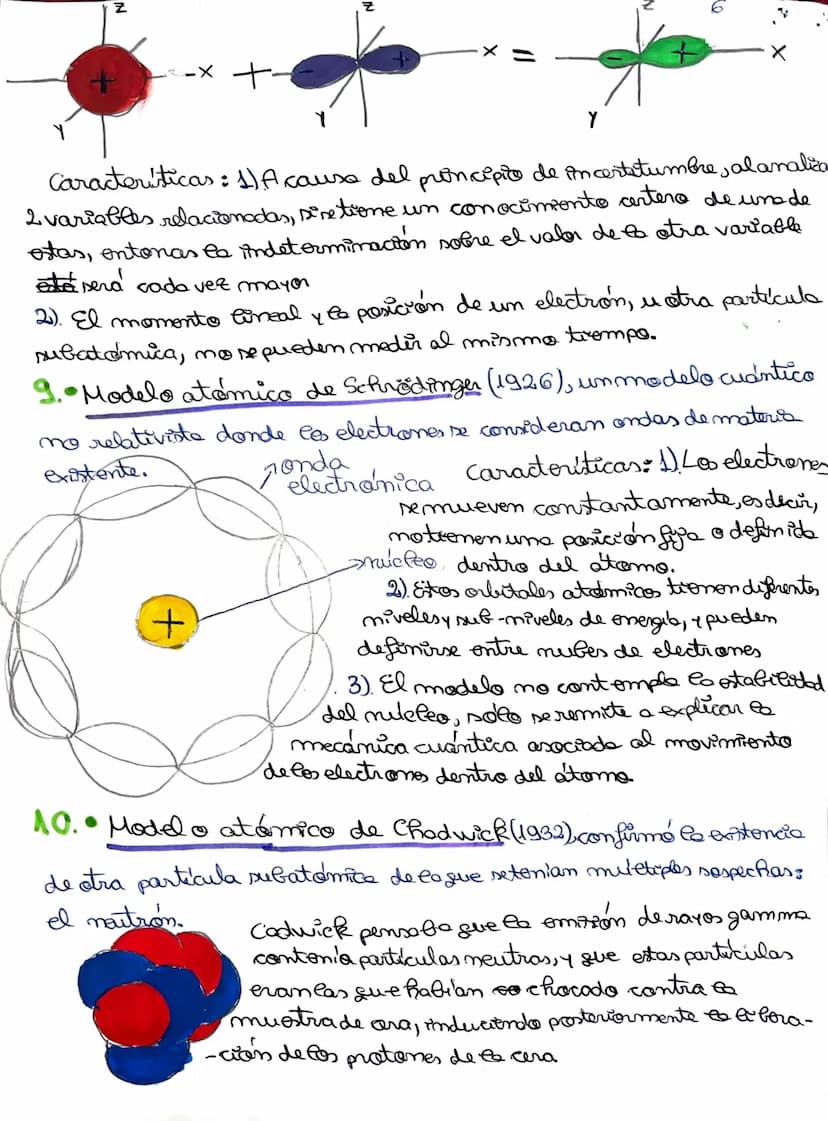 z z z 6
+ -x + - + x = - + x
Y Y Y
Caracteríticas: 1) A causa del principio de incertitumbre, al analiza
2 variables relacionadas, si se tiene un conocimiento certero de una de
estas, entonces la indeterminación sobre el valor de la otra variable
será cada vez mayor
2). El momento lineal y la posición de un electrón, u otra partícula
subatómica, no se pueden medir al mismo tiempo.
9.• Modelo atómico de Schrödinger (1926), un modelo cuántico
no relativista donde los electrones se consideran ondas de materia
existente.
onda
electrónica
Caracteríticas: 1). Los electrones
se mueven constantemente, es decir,
no tienen una posición fija o definida
núcleo. dentro del átomo.
2). Estos orbitales atómicos tienen diferentes
niveles y sub-niveles de energía, y pueden
definirse entre nubes de electrones
3). El modelo no contempla la estabilidad
del núcleo, sólo se remite a explicar la
mecánica cuántica asociada al movimiento
de los electrones dentro del átomo.
+
10.• Modelo atómico de Chadwick (1932), confirmó la existencia
de otra partícula subatómica de la que se tenían múltiples sospechas:
el neutrón.
Cadwick pensaba que la emisión de rayos gamma
contenía partículas neutras, y que estas partículas
eran las que habían chocado contra la
muestra de cera, induciendo posteriormente la libera-
-ción de los protones de la cera